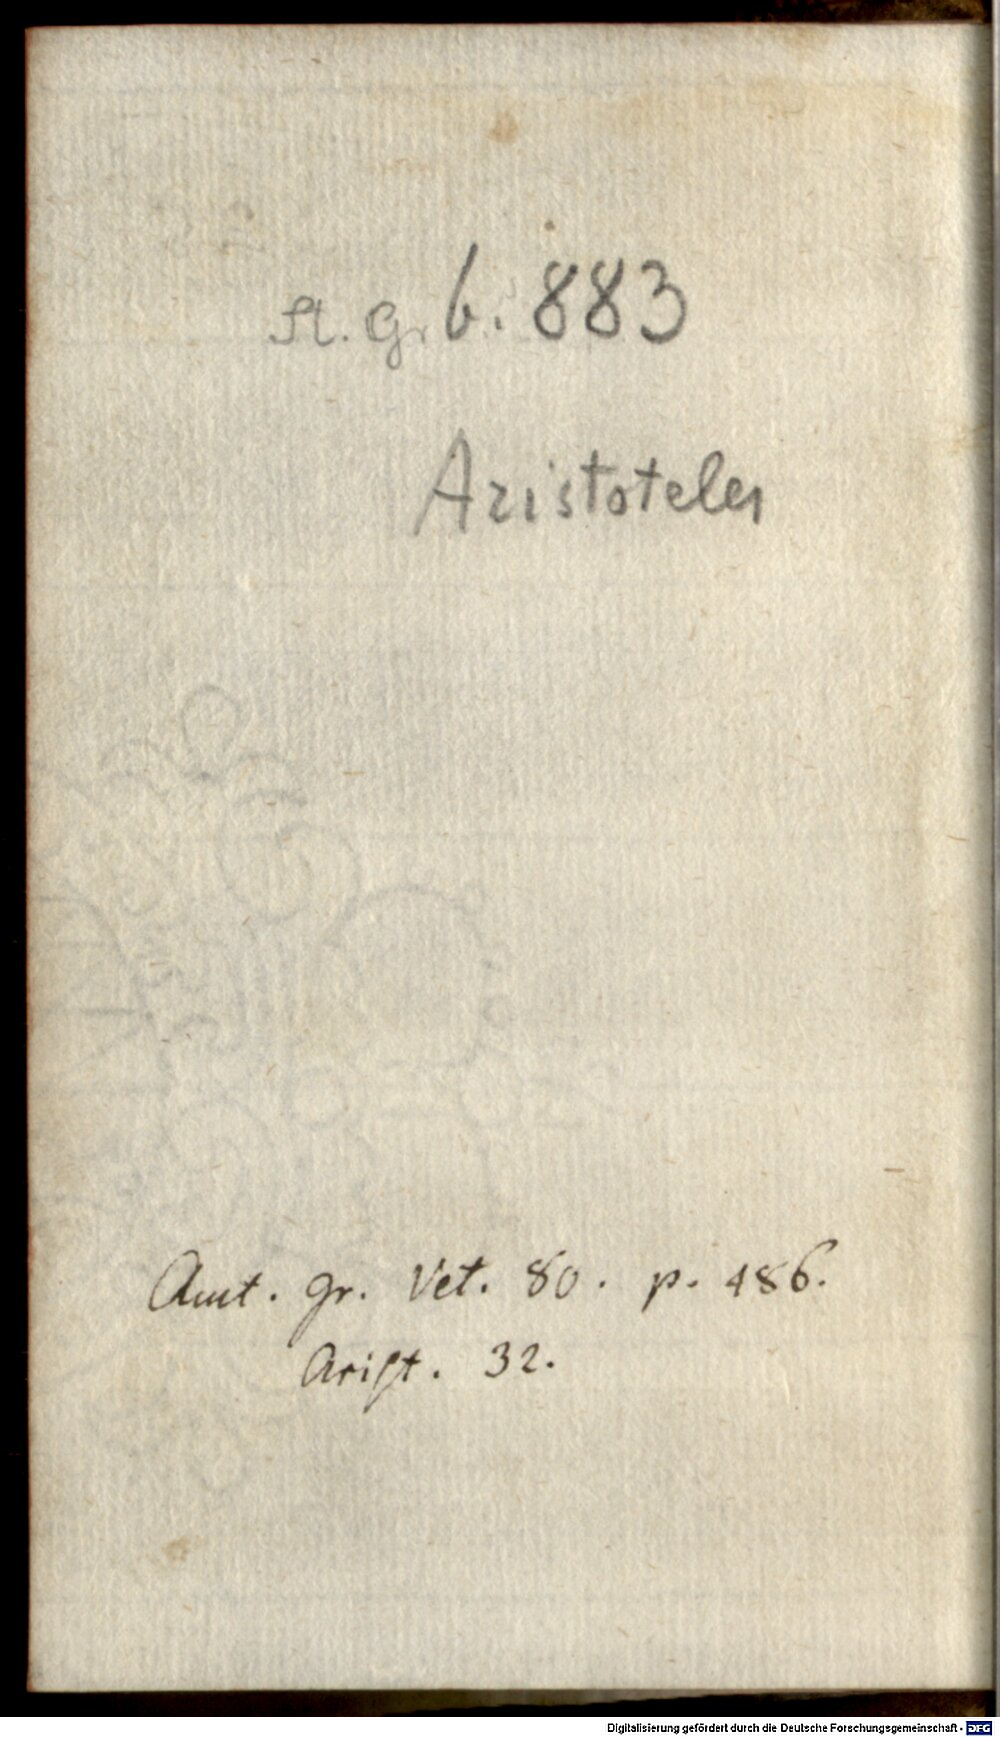 A. gr. b. 883
Aristoteles
Aut. gr. Vet. 80. p. 486.
Arist. 32.
Digitalisierung gefördert durch die Deutsche Forschungsgemeinschaft - DFG